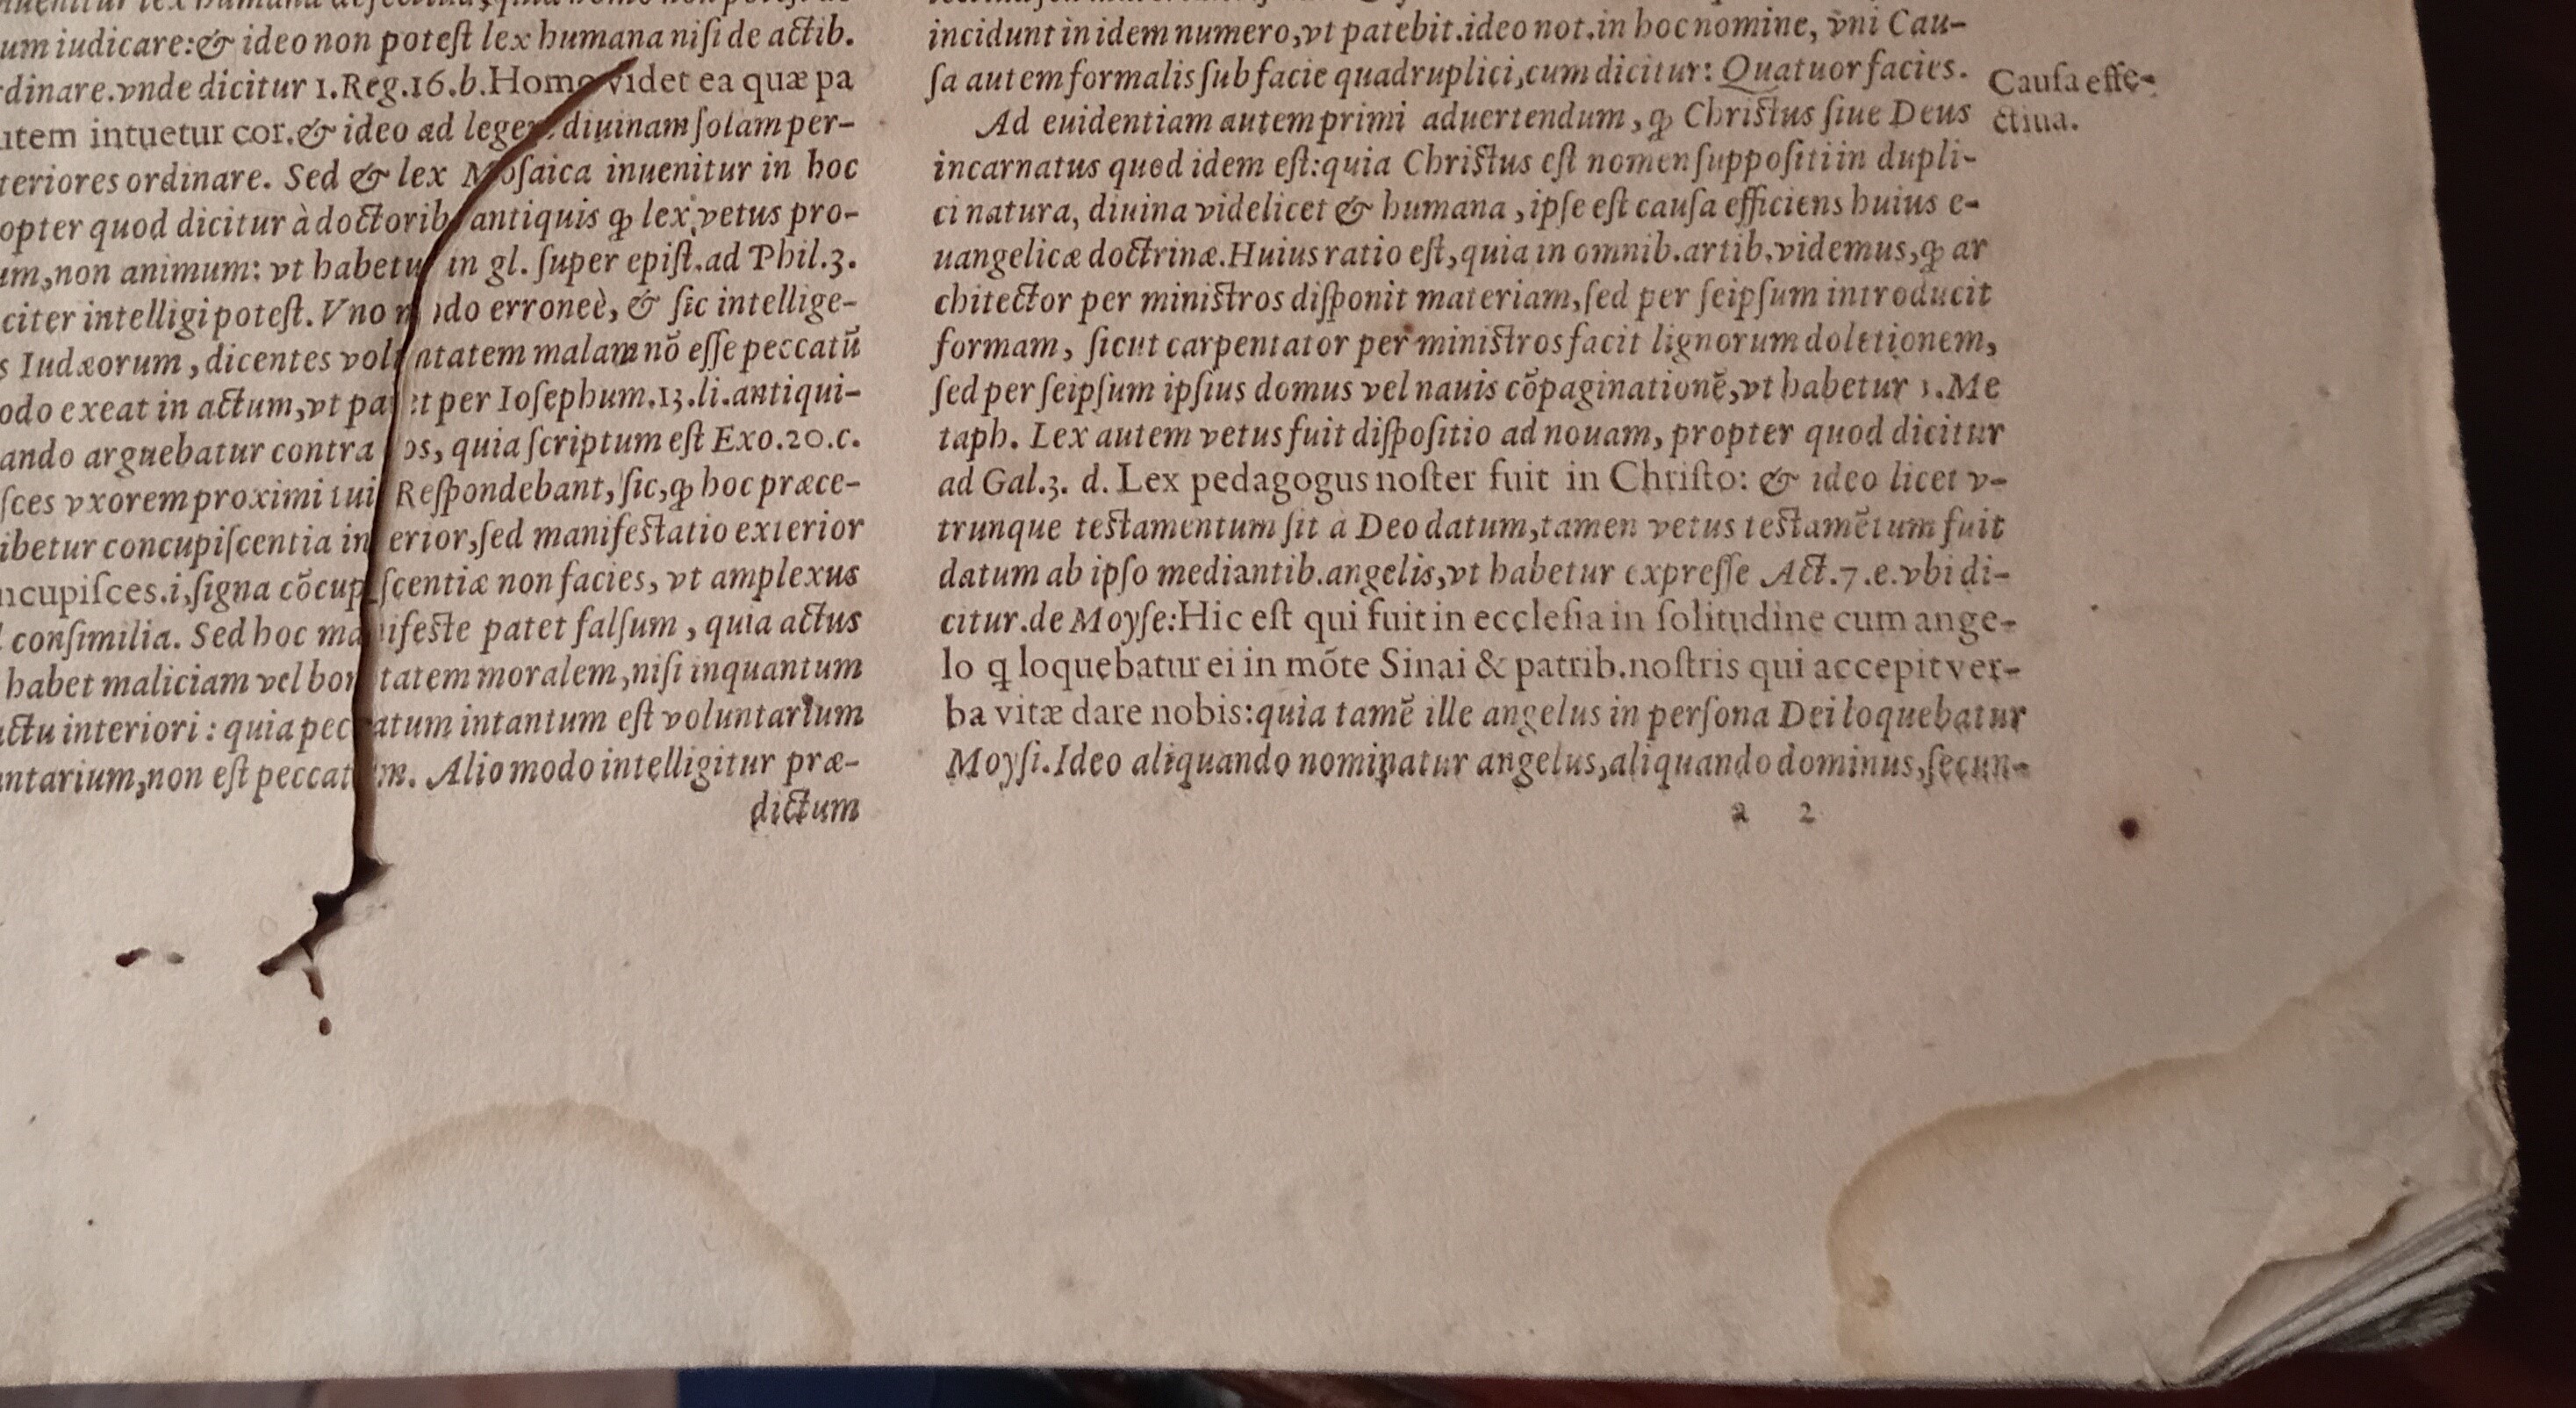 um iudicare:& ideo non poteſt lex humana niſi de actib.
rdinare.vnde dicitur 1.Reg.16.b.Homo videt ea quæ pa
utem intuetur cor.& ideo ad legem diuinam ſolam per-
teriores ordinare. Sed & lex Moſaica inuenitur in hoc
opter quod dicitur à doctorib. antiquis ꝙ lex vetus pro-
um,non animum: vt habetur in gl. ſuper epiſt.ad Phil.3.
citer intelligi poteſt. Vno modo erroneè, & ſic intellige-
s Iudæorum, dicentes voluntatem malam nõ eſſe peccatũ
odo exeat in actum,vt patet per Ioſephum.13.li.antiqui-
ando arguebatur contra eos, quia ſcriptum eſt Exo.20.c.
ſces vxorem proximi tui Reſpondebant, ſic,ꝙ hoc præce-
ibetur concupiſcentia interior,ſed manifeſtatio exterior
ncupiſces.i,ſigna cõcupiſcentiæ non facies, vt amplexus
conſimilia. Sed hoc manifeſte patet falſum, quia actus
habet maliciam vel bonitatem moralem,niſi inquantum
actu interiori: quia peccatum intantum eſt voluntarium
ntarium,non eſt peccatum. Alio modo intelligitur præ-
dictum
incidunt in idem numero,vt patebit.ideo not.in hoc nomine, vni Cau-
ſa autem formalis ſub facie quadruplici,cum dicitur: Quatuor facies.
Ad euidentiam autem primi aduertendum, ꝙ Chriſtus ſiue Deus
incarnatus quod idem eſt:quia Chriſtus eſt nomen ſuppoſiti in dupli-
ci natura, diuina videlicet & humana, ipſe eſt cauſa efficiens huius e-
uangelicæ doctrinæ.Huius ratio eſt,quia in omnib.artib.videmus,ꝙ ar
chitector per miniſtros diſponit materiam,ſed per ſeipſum introducit
formam, ſicut carpentator per miniſtros facit lignorum doletionem,
ſed per ſeipſum ipſius domus vel nauis cõpaginationẽ,vt habetur 1.Me
taph. Lex autem vetus fuit diſpoſitio ad nouam, propter quod dicitur
ad Gal.3. d. Lex pedagogus noſter fuit in Chriſto: & ideo licet v-
trunque teſtamentum ſit à Deo datum,tamen vetus teſtamẽtum fuit
datum ab ipſo mediantib.angelis,vt habetur expreſſe Act.7.e.vbi di-
citur.de Moyſe:Hic eſt qui fuit in eccleſia in ſolitudine cum ange-
lo q loquebatur ei in mõte Sinai & patrib.noſtris qui accepit ver-
ba vitæ dare nobis:quia tamẽ ille angelus in perſona Dei loquebatur
Moyſi.Ideo aliquando nominatur angelus,aliquando dominus,ſecun-
a 2
Cauſa effe-
ctiua.